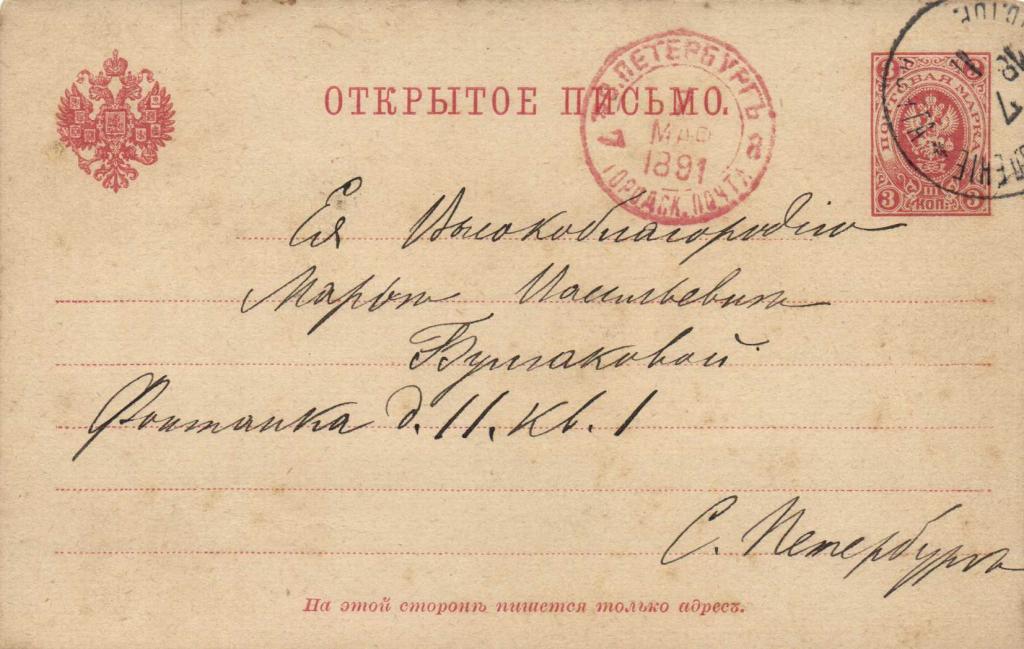 ОТКРЫТОЕ ПИСЬМО.
С.ПЕТЕРБУРГЪ
7 МАР 8
1891
ГОРОДСК. ПОЧТА
ПОЧТОВАЯ МАРКА
3 ТРИ КОП. 3
7
Ея Высокоблагородію
Марьѣ Васильевнѣ
Булгаковой
Фонтанка д. 11. кв. 1
С. Петербургъ
На этой сторонѣ пишется только адресъ.